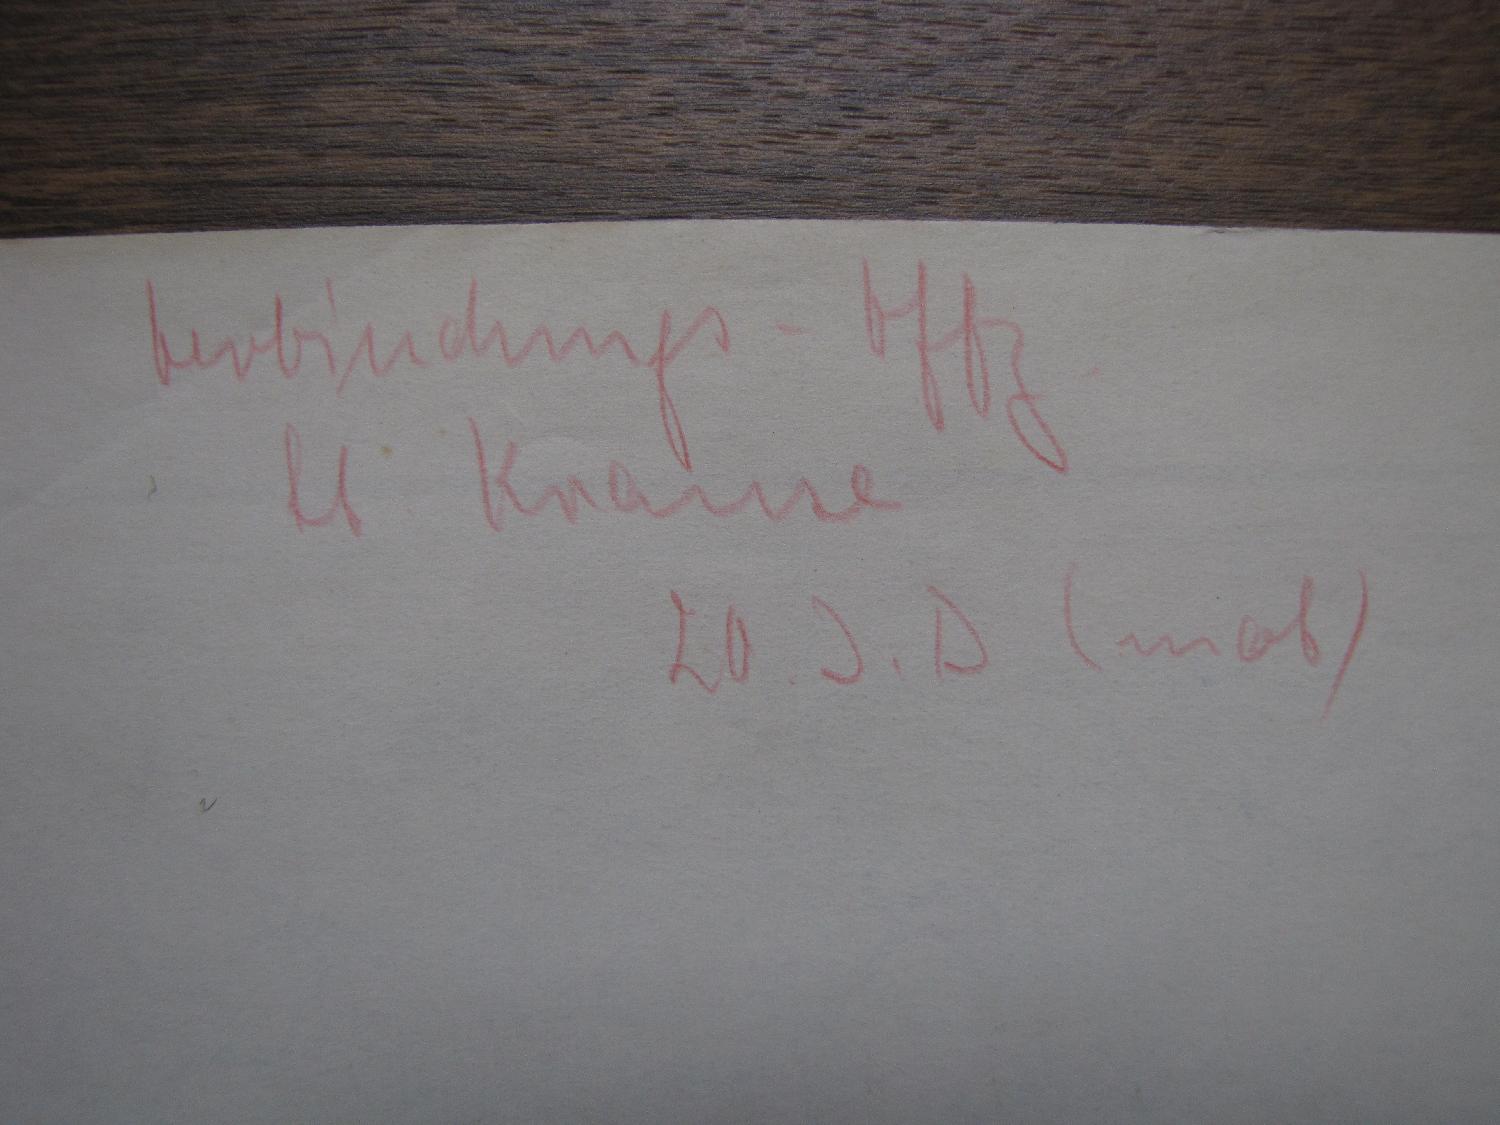 Verbindungs-Offz.
Lt. Krause
20. I.D (mot)